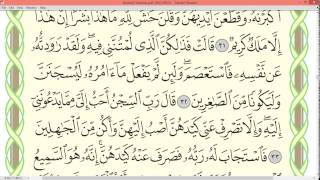 أَكْبَرْنَهُۥ وَقَطَّعْنَ أَيْدِيَهُنَّ وَقُلْنَ حَٰشَ لِلَّهِ مَا هَٰذَا بَشَرًا إِنْ هَٰذَآ
إِلَّا مَلَكٌ كَرِيمٌ ٣١ قَالَتْ فَذَٰلِكُنَّ ٱلَّذِى لُمْتُنَّنِى فِيهِ ۖ وَلَقَدْ رَٰوَدتُّهُۥ
عَن نَّفْسِهِۦ فَٱسْتَعْصَمَ ۖ وَلَئِن لَّمْ يَفْعَلْ مَآ ءَامُرُهُۥ لَيُسْجَنَنَّ
وَلَيَكُونًا مِّنَ ٱلصَّٰغِرِينَ ٣٢ قَالَ رَبِّ ٱلسِّجْنُ أَحَبُّ إِلَىَّ مِمَّا يَدْعُونَنِىٓ
إِلَيْهِ ۖ وَإِلَّا تَصْرِفْ عَنِّى كَيْدَهُنَّ أَصْبُ إِلَيْهِنَّ وَأَكُن مِّنَ ٱلْجَٰهِلِينَ
٣٣ فَٱسْتَجَابَ لَهُۥ رَبُّهُۥ فَصَرَفَ عَنْهُ كَيْدَهُنَّ ۚ إِنَّهُۥ هُوَ ٱلسَّمِيعُ